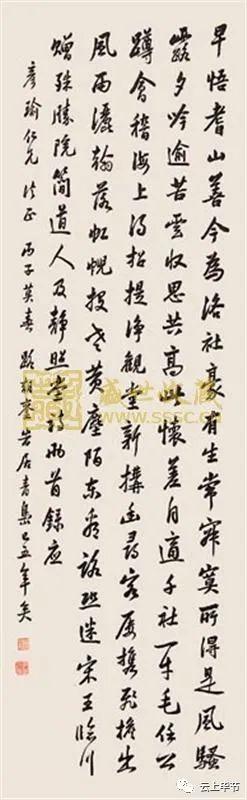 早悟耆山善今為洛社豪有生常寂寞所得是風騷
露夕吟逾苦雲收思共高此懷差自適千社一牛毛任公
蹲會稽海上得招提淨觀堂新構幽尋客屢攜飛檐出
風雨灑翰落虹蜺投老黃塵陌東看路恐迷宋王臨川
贈殊勝院簡道人及靜照堂詩兩首錄應
彥瑜仁兄 法正 丙子莫春 路朝鑾客居青島已五年矣
盛世收藏
www.sssc.cn
云上毕节